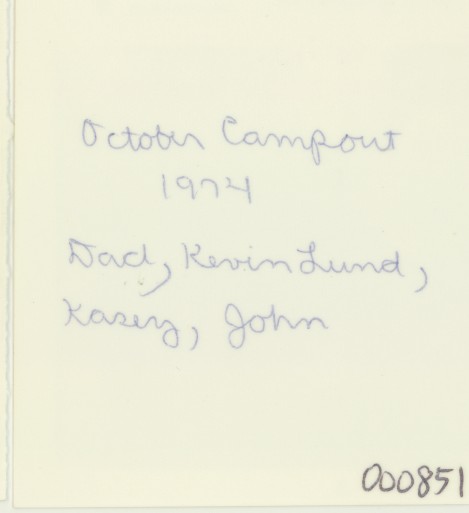 October Campout
1974
Dad, Kevin Lund,
Kasey, John
000851